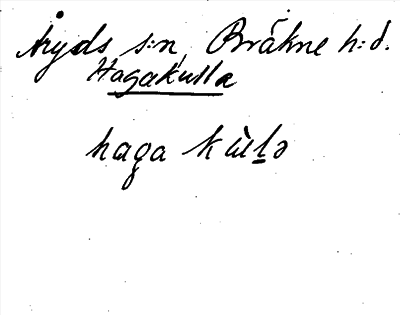 Åryds s:n, Bräkne h:d.
Hagakulla
haga kùlə